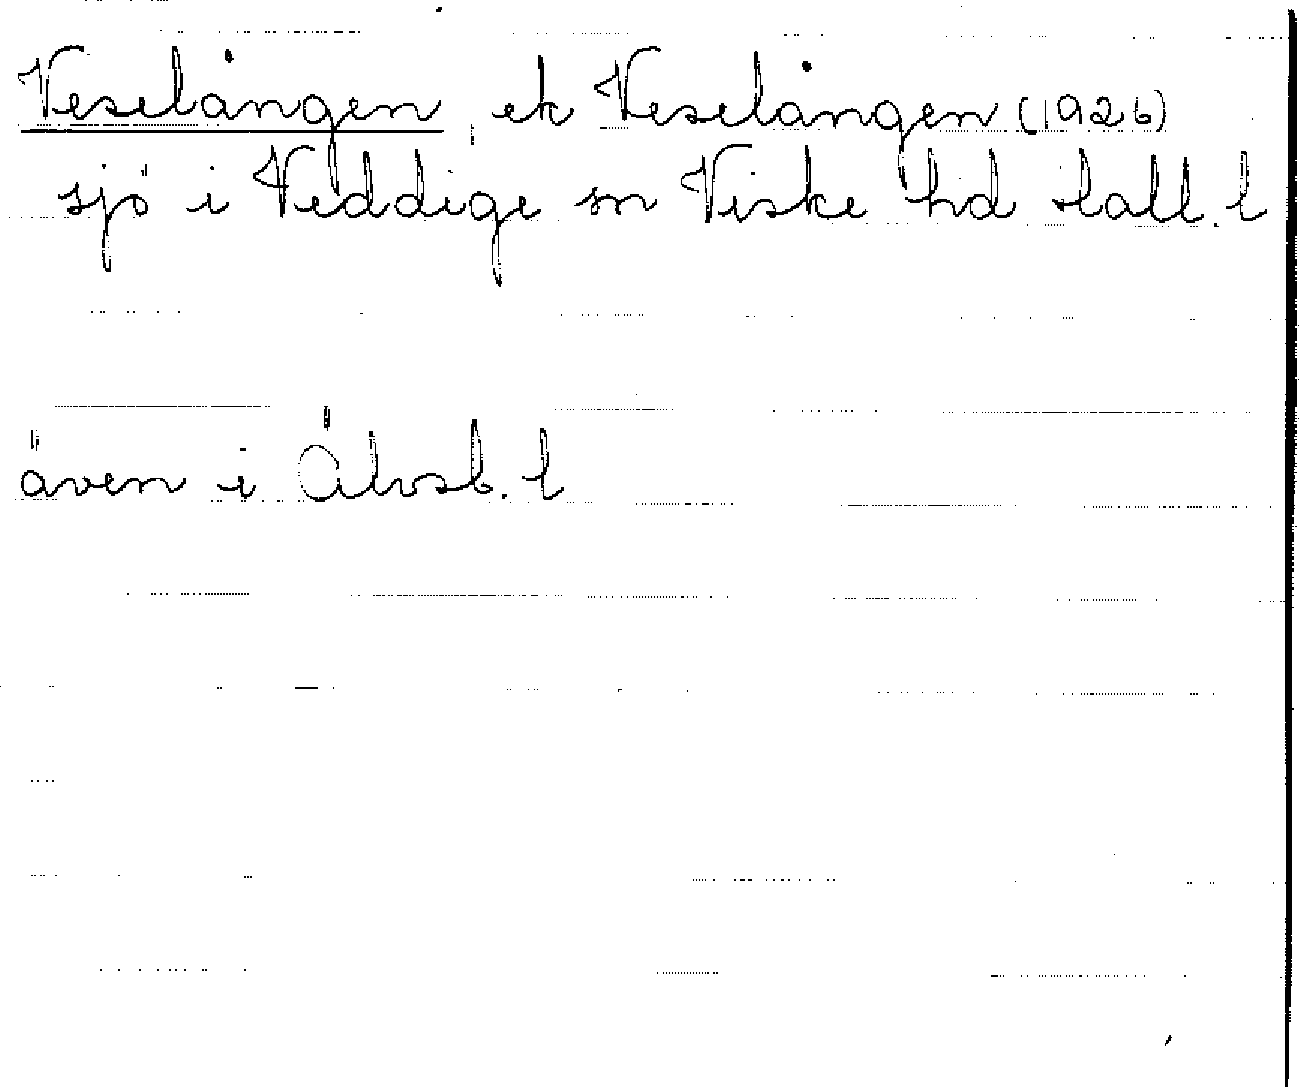 Veselången, ek Veselången (1926)
sjö i Veddige sn Viske hd Hall. l
även i Älvsb. l